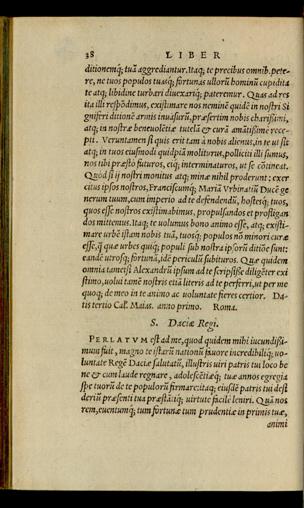 38 LIBER
ditionemq́; tuã aggrediantur. Itaq; te precibus omnib. pete-
re, ne tuos populos tuasq́; fortunas ullorũ hominũ cupidita
te atq; libidine turbari diuexariq́; pateremur. Quas ad res
ita illi respõdimus, existimare nos neminẽ quidẽ in nostri Si
gniferi ditionẽ armis inuasurũ, præsertim nobis charissimi,
atq; in nostræ beneuolẽtiæ tutela & cura amãtissime rece-
pti. Veruntamen si quis erit tam à nobis alienus, in te ut sit
atq; in tuos eiusmodi quidpiã moliturus, polliciti illi sumus,
nos tibi præsto futuros, eiq́; interminaturos, ut se cõtineat.
Quòd si ij nostri monitus atq; minæ nihil proderunt: exer
citus ipsos nostros, Franciscumq́; Mariã Vrbinatiũ Ducẽ ge
nerum tuum, cum imperio ad te defendendũ, hostesq́; tuos,
quos esse nostros existimabimus, propulsandos et profligan
dos mittemus. Itaq; te uolumus bono animo esse, atq; existi-
mare urbẽ istam nobis tuã, tuosq́; populos nõ minori curæ
esse, q̃ quæ urbes quiq́; populi sub nostra ipsorũ ditiõe sunt:
eandẽ utrosq́; fortunã, idẽ periculũ subituros. Quæ quidem
omnia tametsi Alexandrũ ipsum ad te scripsisse diligẽter exi
stimo, uolui tamẽ nostris etiã literis ad te perferri, ut per me
quoq; de meo in te animo ac uoluntate fieres certior. Da-
tis tertio Cal. Maias. anno primo. Roma.
S. Daciæ Regi.
PERLATVM est ad me, quod quidem mihi iucundissi-
mum fuit, magno te istarũ nationũ fauore incredibiliq; uo-
luntate Regẽ Daciæ salutatũ, illustris uiri patris tui loco be
ne & cum laude regnare, adolescẽtiæq́; tuæ annos egregia
spe tuorũ de te populorũ firmare: itaq; eiusdẽ patris tui desi
deriũ præsenti tua præstãtiq́; uirtute facile leniri. Quã nos
rem, euentumq́; tum fortunæ tum prudentiæ in primis tuæ,
animi